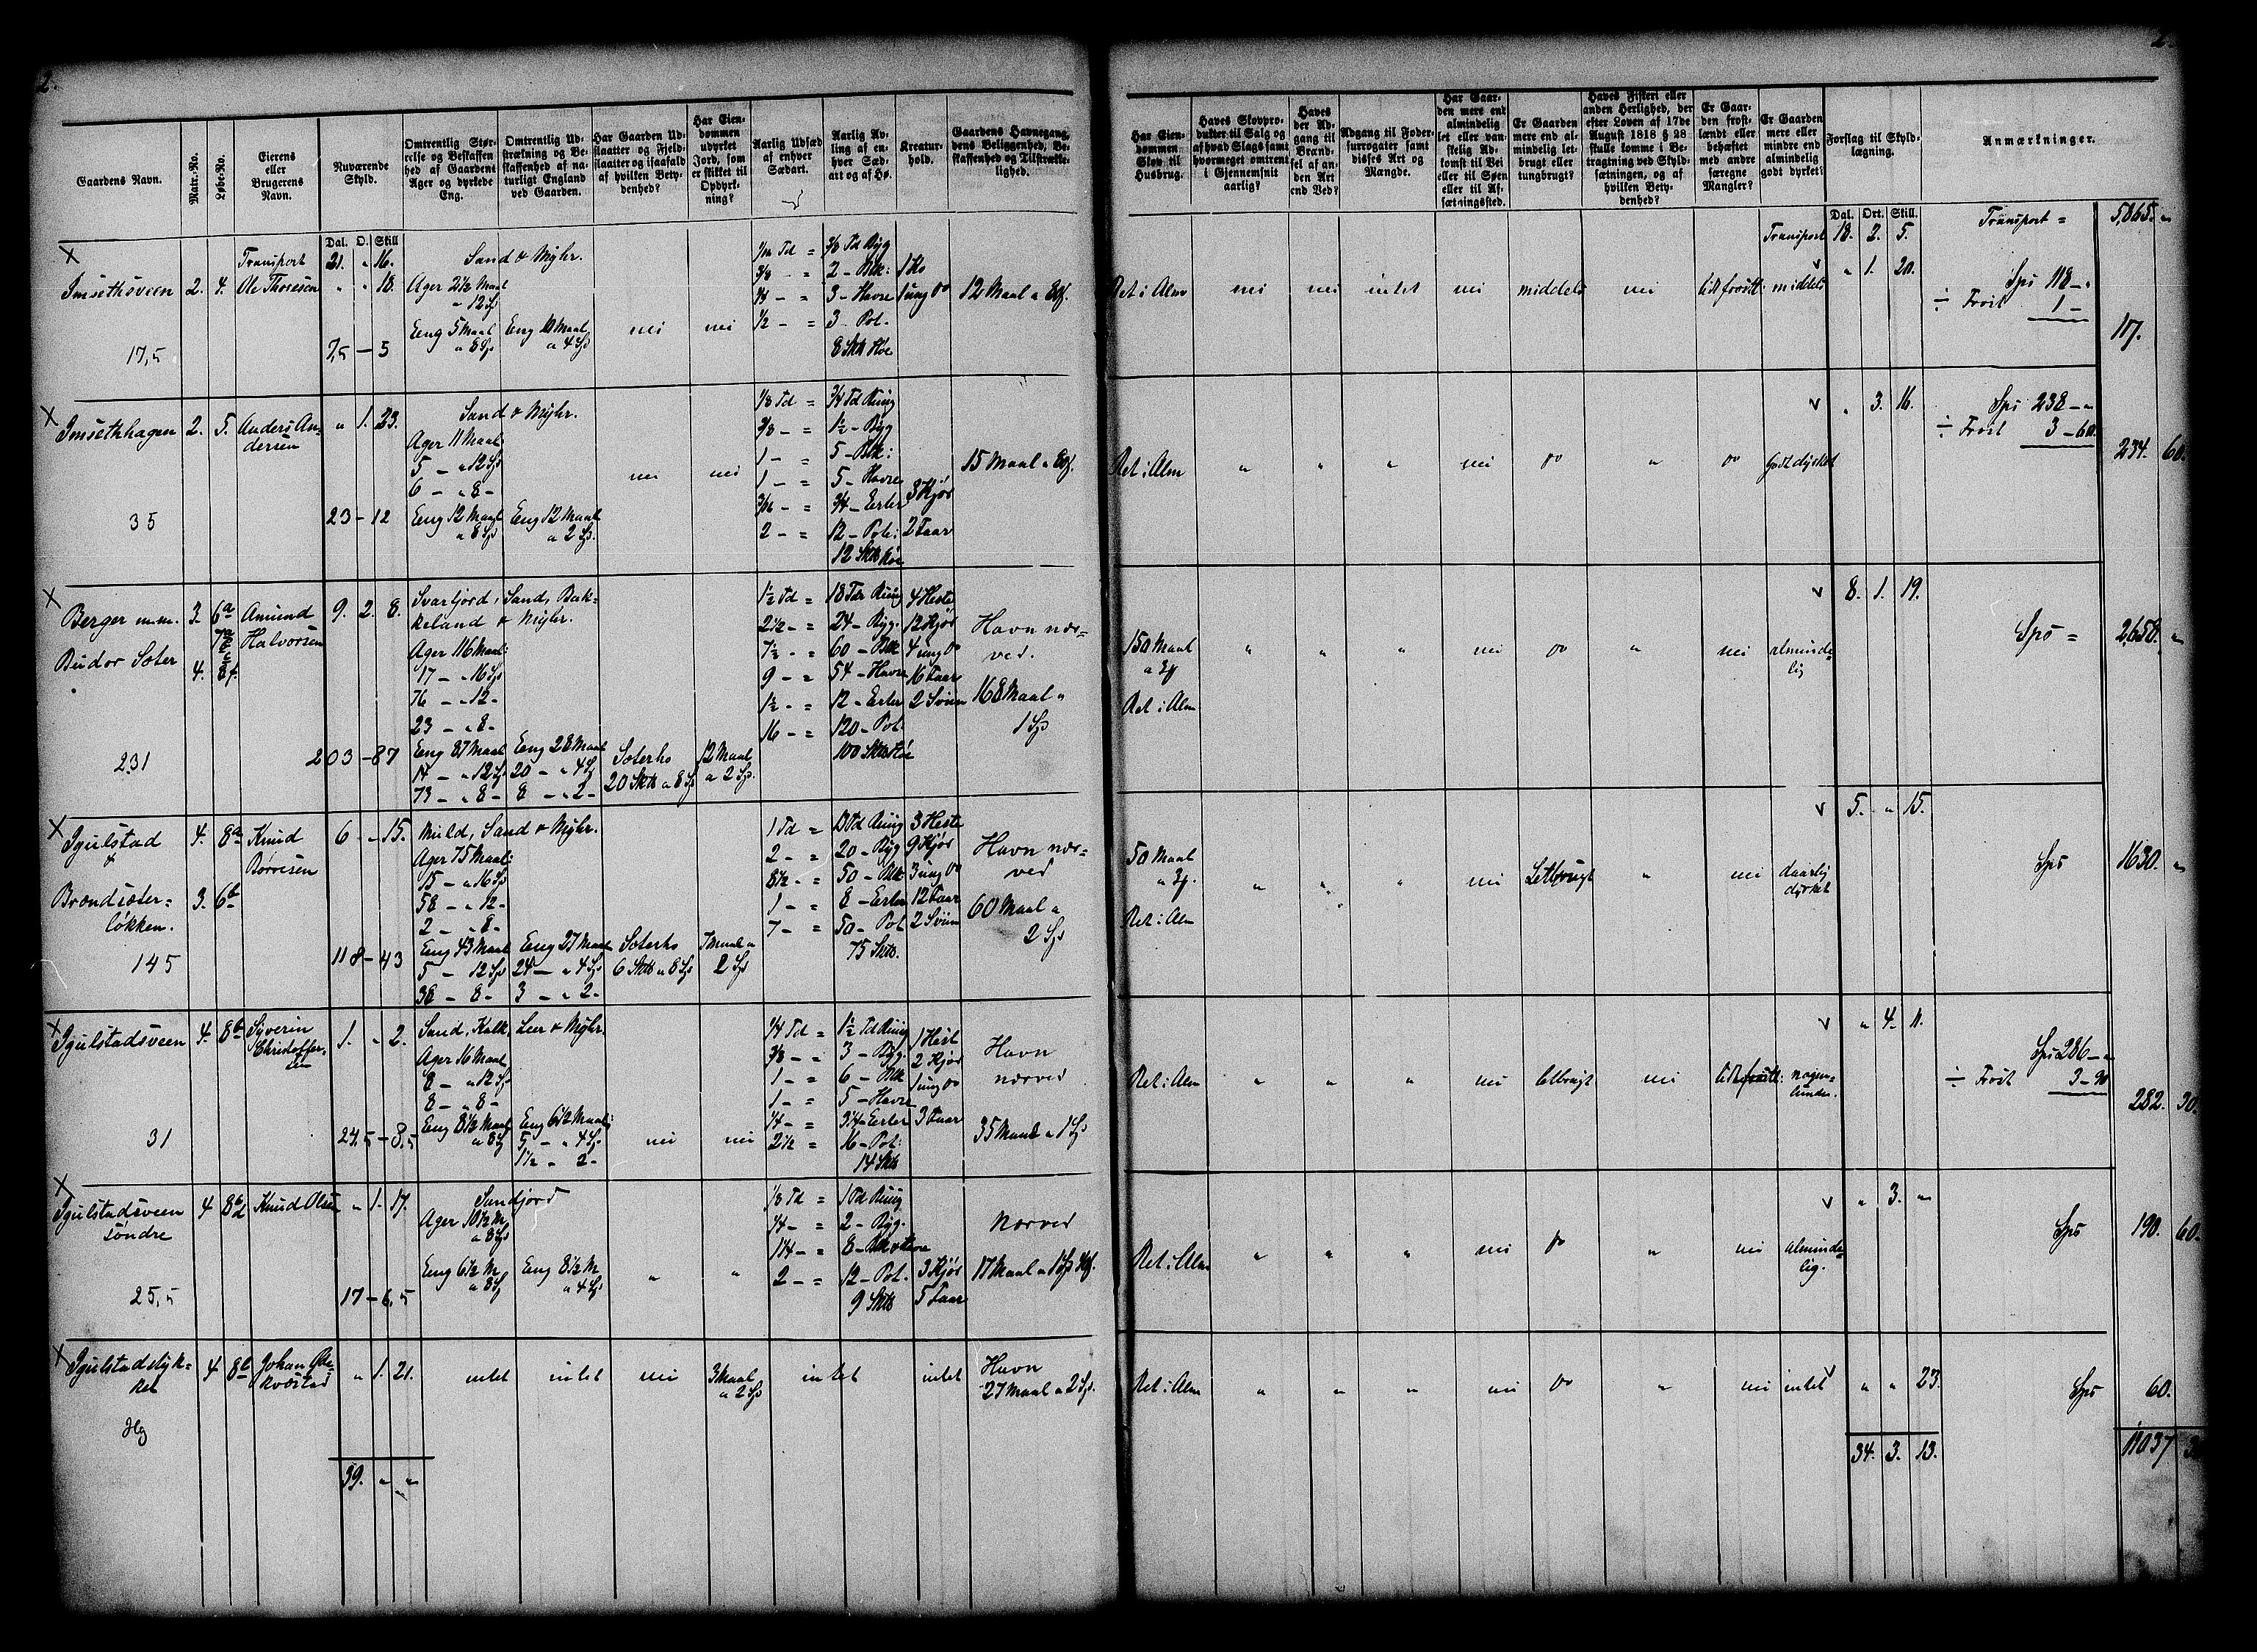 2.
2.
Gaardens Navn.
Matr.-No.
Løbe-No.
Eierens eller Brugerens Navn.
Nuværende Skyld.
Omtrentlig Størrelse og Beskaffenhed af Gaardens Ager og dyrkede Eng.
Omtrentlig Udstrækning og Beskaffenhed af naturligt England ved Gaarden.
Har Gaarden Udslaatter og Fjeldslaatter og isaafald af hvilken Betydenhed?
Har Eiendommen udyrket Jord, som er skikket til Opdyrkning?
Aarlig Udsæd af enhver Sædart.
Aarlig Avling af enhver Sædart og af Hø.
Kreaturhold.
Gaardens Havnegang, dens Beliggenhed, Beskaffenhed og Tilstrækkelighed.
Har Eiendommen Skov til Husbrug.
Haves Skovprodukter til Salg og af hvad Slags samt hvormeget omtrent i Gjennemsnit aarlig?
Haves der Adgang til Brændsel af anden Art end Ved?
Adgang til Fodersurrogater samt disses Art og Mængde.
Har Gaarden mere end almindelig let eller vanskelig Adkomst til Vei eller til Søen eller til Afsætningssted.
Er Gaarden mere end almindelig letbrugt eller tungbrugt?
Haves Fiskeri eller anden Herlighed, der efter Loven af 17de August 1818 § 28 skulle komme i Betragtning ved Skyldsætningen, og af hvilken Betydenhed?
Er Gaarden frostlændt eller behæftet med andre særegne Mangler?
Er Gaarden mere eller mindre end almindelig godt dyrket?
Forslag til Skyldlægning.
Anmærkninger.
Dal. O. Skill
Dal. Ort. Skill.
Transport 21. " 16.
Transport 18. 2. 5. Transport = 5,865. "
Imsethsveen 2. 4. Ole Thoresen " " 18.
Sand & Myhr.
Ager 2½ Maal
a 12 Lp
Eng 5 Maal a 8 Lp
Eng 10 Maal a 4 Lp
nei nei
3/8 Td Byg
2 - Blk:
3 - Havre
½ - = 3 - Pot.
8 Sktt Høe
1 Ko
1 ung Do
12 Maal a
Ret i Alm nei nei intet nei middels nei lidt frostl: middels " 1. 20.
Sps 118 - "
÷ Frost 1 -
117.
17,5
7,5 - 5
Imsethhagen 2. 5. Anders Andersen " 1. 23.
Sand & Myhr.
Ager 11 Maal
5 - a 12 Lp
6 - a 8 -
Eng 12 Maal a 8 Lp
Eng 12 Maal a 2 Lp.
nei nei
1/8 Td = 3/4 Td Rug
3/8 - = 1½ - Byg
1 - = 5 - Blk:
1 - = 5 - Havre
3/16 - = 3/4 - Erter
2 - = 12 - Pot:
12 Sktt Høe
3 Kjør
2 Faar
15 Maal a
Ret i Alm " " " nei Do " Do godt dyrket " 3. 16.
Sps 238 - "
÷ Frost 3 - 60.
234. 60.
35
23 - 12
Berger m.m. 3. 6a Amund Halvorsen 9. 2. 8.
Budor Sæter 4. 8f
Svartjord, Sand, Bakkeland & Myhr.
Ager 116 Maal:
17 - a 16 Lp
76 - a 12 -
23 - a 8 -
Eng 87 Maal
14 - a 12 Lp
73 - a 8 -
Eng 28 Maal
20 - a 4 Lp
8 - a 2 -
Sæterhø
20 Sktt a 8 Lp
12 Maal
a 2 Lp.
1½ Td = 18 Tdr Rug
2½ - = 24 - Byg.
7½ - = 60 - Blk
9 - = 54 - Havre
1½ - = 12 - Erter
16 - = 120 - Pot.
100 Sktt Høe
4 Heste
12 Kjør
4 ung Do
16 Faar
2 Sviin
Havn nærved.
168 Maal a
1 Lp
150 Maal
Ret i Alm
" " " nei Do " nei almindelig 8. 1. 19.
Sps = 2,658. "
231
203 - 87
Igulstad & Brændsæterløkken. 4. 8a 3. 6b Knud Børresen 6 - " 15.
Muld, Sand & Myhr.
Ager 75 Maal:
15 - a 16 Lp
58 - a 12 -
2 - a 8 -
Eng 43 Maal
5 - 12 Lp
38 - 8 -
Eng 27 Maal
24 - a 4 Lp
3 - a 2 -
Sæterhø
6 Sktt a 8 Lp
7 Maal a
2 Lp
1 Td = 13 Td Rug
2 - = 20 - Byg
8½ - = 50 - Blk
1 - = 8 - Erter
7 - = 50 - Pot
75 Sktt.
3 Heste
9 Kjør
3 ung Do
12 Faar
2 Sviin
Havn nærved
60 Maal a
2 Lp
50 Maal
Ret i Alm
" " " nei Letbrugt " nei daarlig dyrket 5. " 15.
Sps 1630. "
145
118 - 43
Igulstadsveen 4. 8b Syverin Christoffersen 1. " 2.
Sand, Kalk, Leer & Myhr.
Ager 16 Maal
8 - a 12 Lp
8 - a 8 -
Eng 8½ Maal a 8 Lp
Eng 6½ Maal:
5 - a 4 Lp
1½ - 2 -
nei nei
1/4 Td = 1½ Td Rug
3/8 - = 3 - Byg.
1 - = 6 - Blk
1 - = 5 - Havre
1/4 - = 3/4 - Erter
2½ = 16 - Pot:
14 Sktt
1 Hest
2 Kjør
1 ung Do
3 Faar
Havn nærved
35 Maal a 1 Lp
Ret i Alm " " " nei letbrugt nei lidt frostl: nogenlunde. " 4. 11.
Sps 286 - "
÷ Frost 3 - 90
282. 30.
31
24,5 - 8,5
Igulstadsveen søndre 4 8d Knud Olsen " 1. 17.
Sandjord
Ager 10½ M
a 8 Lp
Eng 6½ M a 8 Lp
Eng 8½ M a 4 Lp
" "
1/8 Td = 1 Td Rug
1/4 - = 2 - Byg.
1¼ - = 8 -
2 - = 12 - Pot.
9 Sktt
3 Kjør
5 Faar
Nærved
17 Maal a 1 Lp
Ret i Alm " " " nei Do " nei almindelig. " 3. "
Sps 190. 60.
25,5
17 - 6,5
Igulstadstykket 4 8c Johan " 1. 21.
intet intet nei 3 Maal a 2 Lp intet intet
Havn
27 Maal a 2 Lp.
Ret i Alm " " " nei Do " nei intet " " 23.
Sps 60.
Hg
39. " "
34. 3. 13.
11037